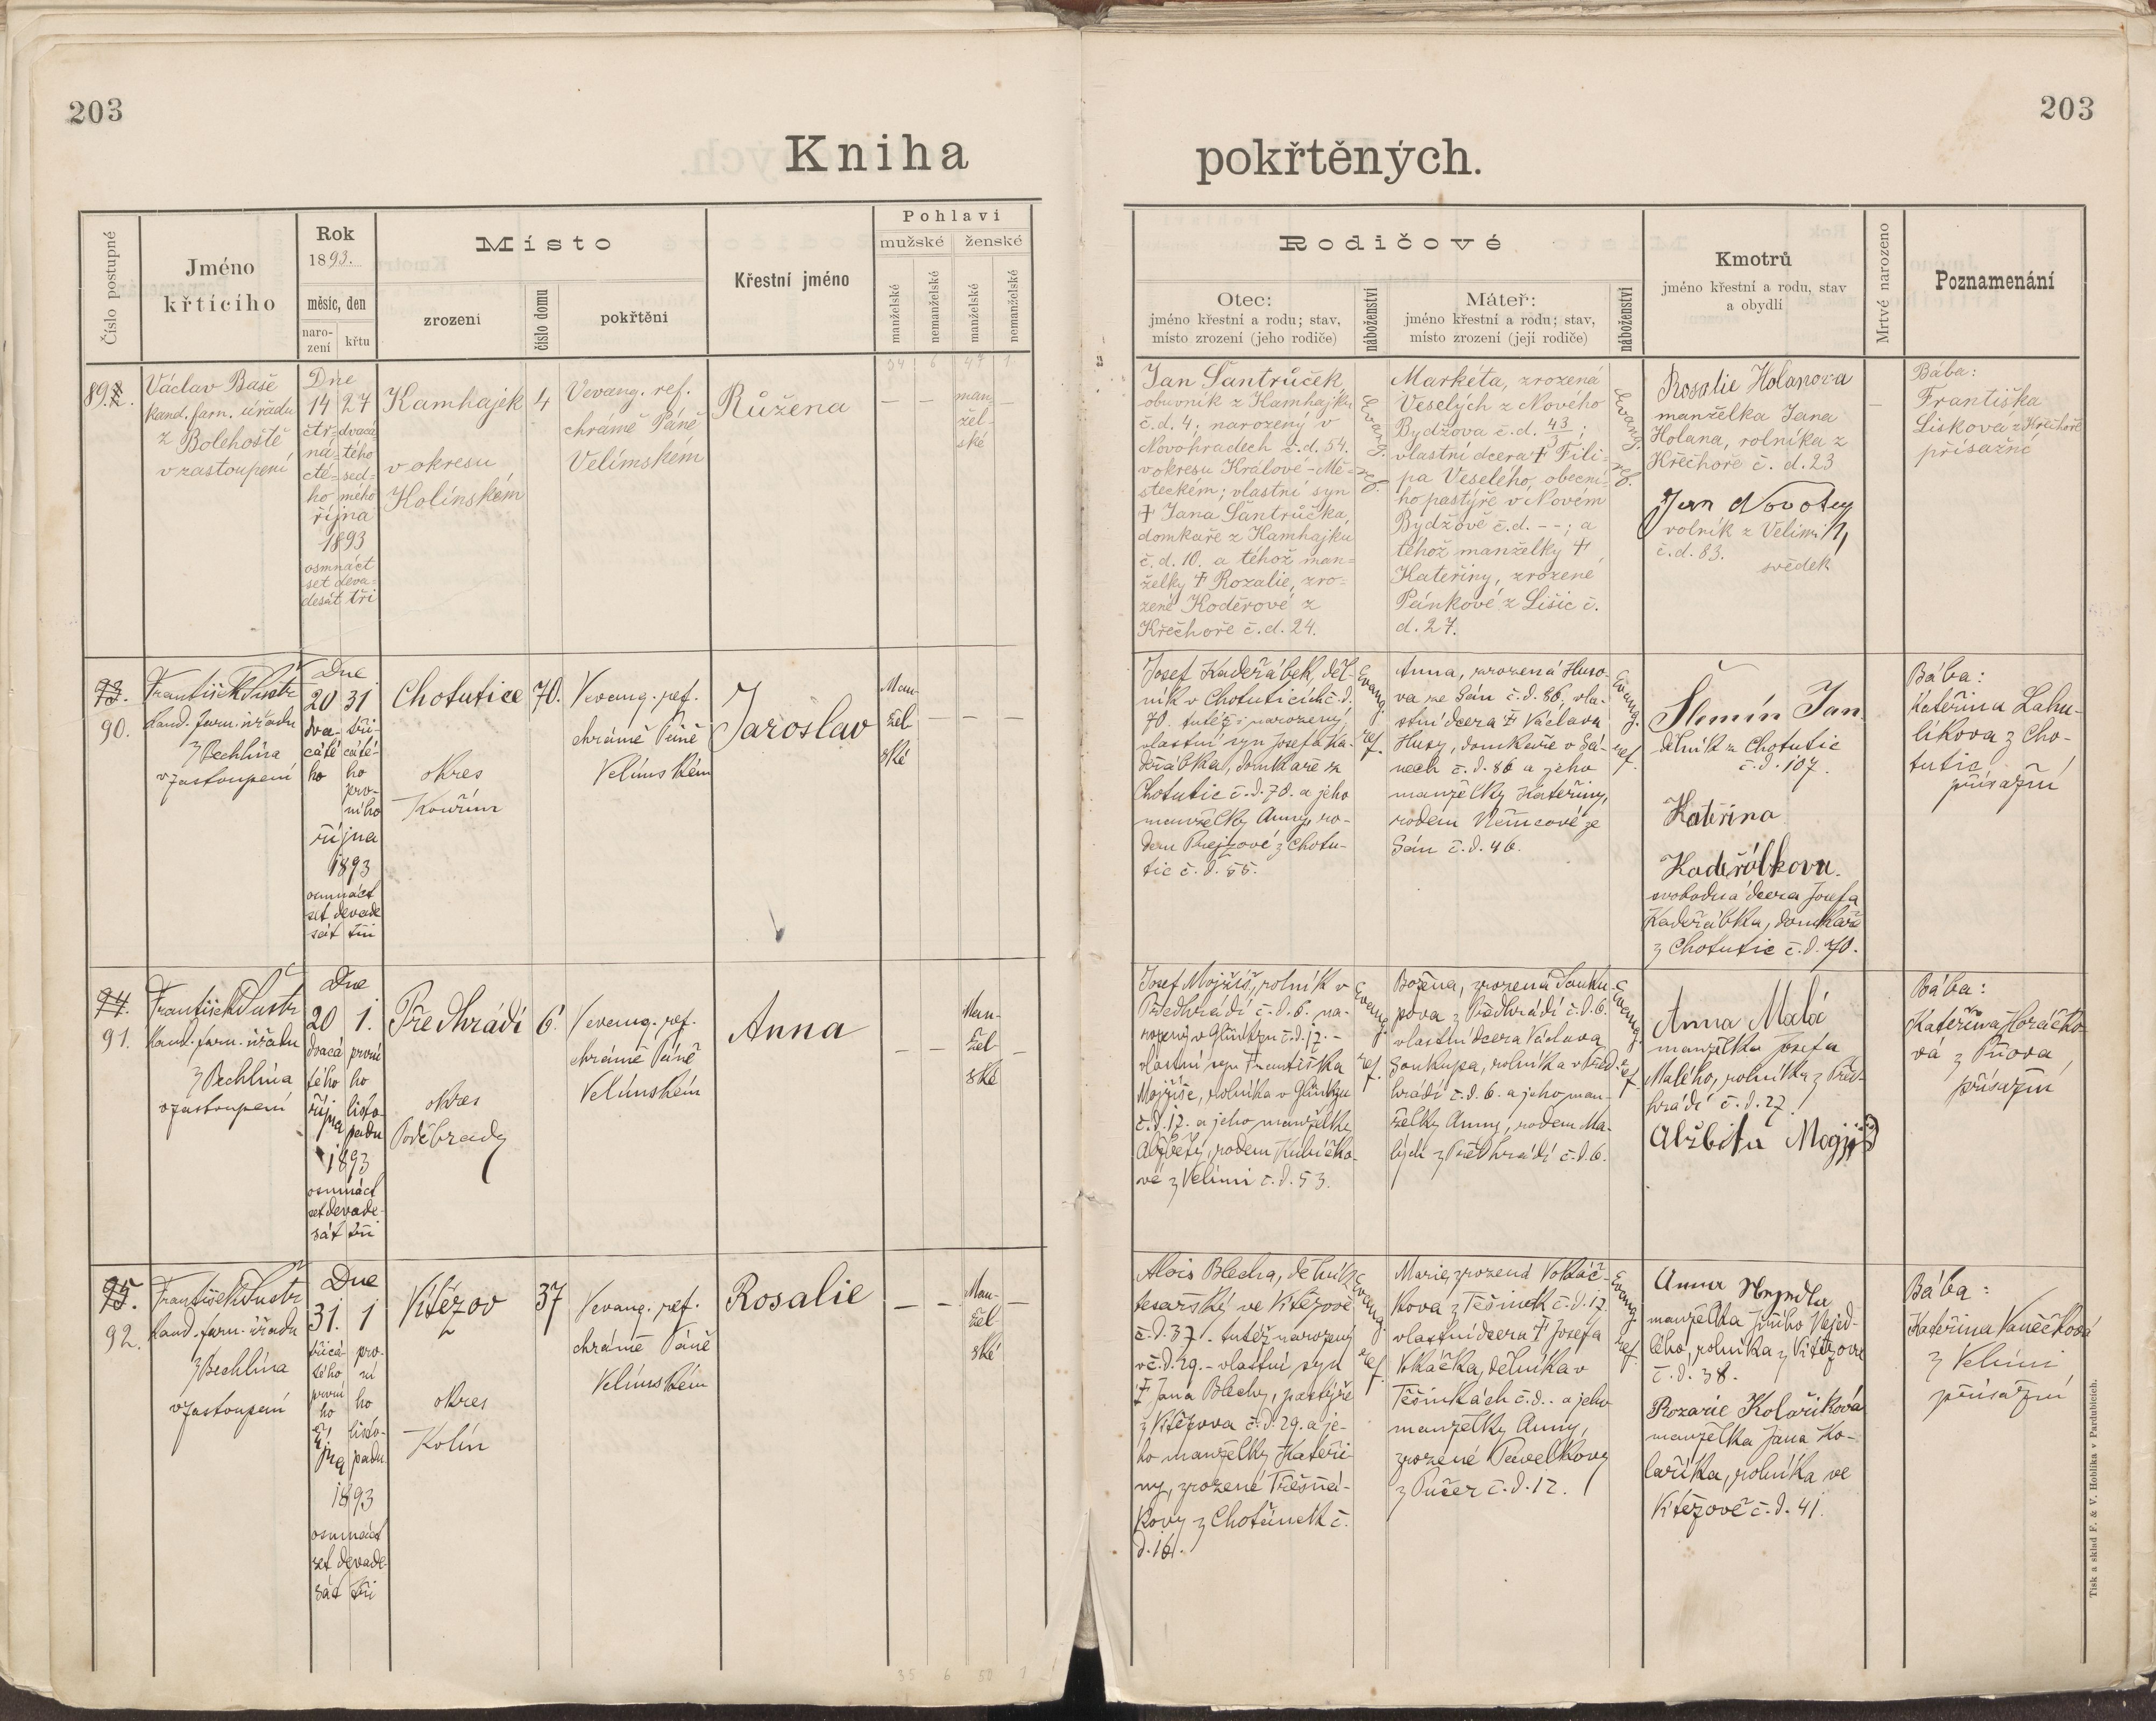 203
203
Kniha
pokřtěných.
Číslo postupné
Jméno
křtícího
Rok
1893.
měsíc, den
naro-
zení
křtu
Místo
zrození
číslo domu
pokřtění
Křestní jméno
Pohlaví
mužské
ženské
manželské
nemanželské
manželské
nemanželské
Rodičové
Otec:
jméno křestní a rodu; stav,
místo zrození (jeho rodiče)
náboženství
Máteř:
jméno křestní a rodu; stav,
místo zrození (její rodiče)
náboženství
Kmotrů
jméno křestní a rodu, stav
a obydlí
Mrtvé narozeno
Poznamenání
34 6 47 1
89.
Václav Baše
kand. farn. úřadu
z Bolehoště
v zastoupení
Dne
14 27
čtr- dvacá-
ná- tého
cté- sed-
ho mého
října
1893
osmnáct
set deva-
desát tři
Kamhajek
v okresu
Kolínském
4
V evang. ref.
chrámě Páně
Velimském
Růžena
man-
žel-
ské
Jan Šantrůček,
obuvník z Kamhajku
č.d. 4; narozený v
Novohradech č.d. 54.
v okresu Králové-Mě-
steckém; vlastní syn
† Jana Šantrůčka,
domkaře z Kamhajku
č. d. 10. a téhož man-
želky † Rozalie, zro-
zené Koděrové z
Křečhoře č. d. 24.
Evang. ref.
Markéta, zrozená
Veselých z Nového
Bydžova č.d. 43/3;
vlastní dcera † Fili-
pa Veselého, obecní-
ho pastýře v Novém
Bydžově č.d. --; a
téhož manželky †
Kateřiny, zrozené
Pánkové z Lišic č.
d. 27.
Evang. ref.
Rosalie Holanova
manželka Jana
Holana, rolníka z
Křečhoře č. d. 23
Jan Novotny
rolník z Velimi
č.d. 83.
svědek
Bába:
Františka
Lisková z Křečhoře
přísažné
93.
90.
František Šustr
kand. farn. úřadu
z Bechlína
v zastoupení
Dne
20 31
dva- tři-
cáté- cáté-
ho ho
prv-
ního
října
1893
osmnáct
set devade
sát tři
Chotutice
okres
Kouřim
70.
V evang. ref.
chrámě Páně
Velimském
Jaroslav
Man-
žel-
ské
Josef Kadeřábek, děl-
ník v Chotuticích č.d.
70. tutéž i narozený,
vlastní syn Josefa Ka-
deřábka, domkaře z
Chotutic č.d. 70. a jeho
manželky Anny, ro-
dem Prejzové z Chotu-
tic č.d. 55.
Evang. ref.
Anna, zrozená Huso-
va ze Sán č.d. 86, vla-
stní dcera † Václava
Husy, domkaře v Sá-
nech č.d. 86 a jeho
manželky Kateřiny,
rodem Němcové ze
Sán č.d. 46.
Evang. ref.
Šlemín Jan
dělník z Chotutic
č.d. 107.
Kateřina
Kadeřábkova.
svobodná dcera Josefa
Kadeřábka, domkaře
z Chotutic č.d. 70.
Bába:
Kateřina Lahu-
líkova z Cho-
tutic
přísažní
94.
91.
František Šustr
kand. farn. úřadu
z Bechlína
v zastoupení
Dne
20 1.
dvacá první
tého ho
říj- listo-
na padu
1893
osmnáct
set devade-
sát tři
Předhrádí
okres
Poděbrady
6.
V evang. ref.
chrámě Páně
Velimském
Anna
Man-
žel-
ské
Josef Mojžíš, rolník v
Předhrádí č.d. 6. na-
rozený v Gluntzu č.d. 17. -
vlastní syn Františka
Mojžíše, rolníka v Gluntzu
č.d. 17. a jeho manželky
Alžběty, rodem Kubíčko-
vé z Velimi č.d. 53.
Evang. ref.
Božena, zrozená Souku-
pova z Předhrádí č.d. 6.
vlastní dcera Václava
Soukupa, rolníka v Před-
hrádí č.d. 6. a jeho man-
želky Anny, rodem Ma-
lých z Předhrádí č.d. 6.
Evang. ref.
Anna Malá
manželka Josefa
Malého, rolníka z Před-
hrádí č.d. 27.
Alžběta Mogjiš
Bába:
Kateřina Horáčko-
vá z Pňova
přísažní
95.
92.
František Šustr
kand. farn. úřadu
z Bechlína
v zastoupení
Dne
31. 1
třicá- prv-
tého ní
první ho
ho listo-
říj- padu
na
1893
osmnáct
set devade-
sát tři
Vítězov
okres
Kolín
37
V evang. ref.
chrámě Páně
Velimském
Rosalie
Man-
žel-
ské
Alois Blecha, dělník
tesařský ve Vítězově
č.d. 37. tutéž narozený
v č.d. 29. - vlastní syn
† Jana Blechy, pastýře
z Vítězova č.d. 29. a je-
ho manželky Kateři-
ny, zrozené Třešňá-
kovy z Chotánek č.
d. 16.
Evang. ref.
Marie, zrozená Vokáč-
kova z Těšinek č.d. 17.
vlastní dcera † Josefa
Vokáčka, dělníka v
Těšinkách č.d. .. a jeho
manželky Anny,
zrozené Pavelkovy
z Pučer č.d. 12.
Evang. ref.
Anna
manželka Jiřího Vejd-
lého, rolníka z Vítězova
č.d. 38.
Rozarie Kolaříková
manželka Jana Ko-
laříka, rolníka ve
Vítězově č.d. 41.
Bába:
Kateřina Vaněčková
z Velimi
přísažní
35 6 50 1
Tisk a sklad F. & V. Hoblíka v Pardubicích.